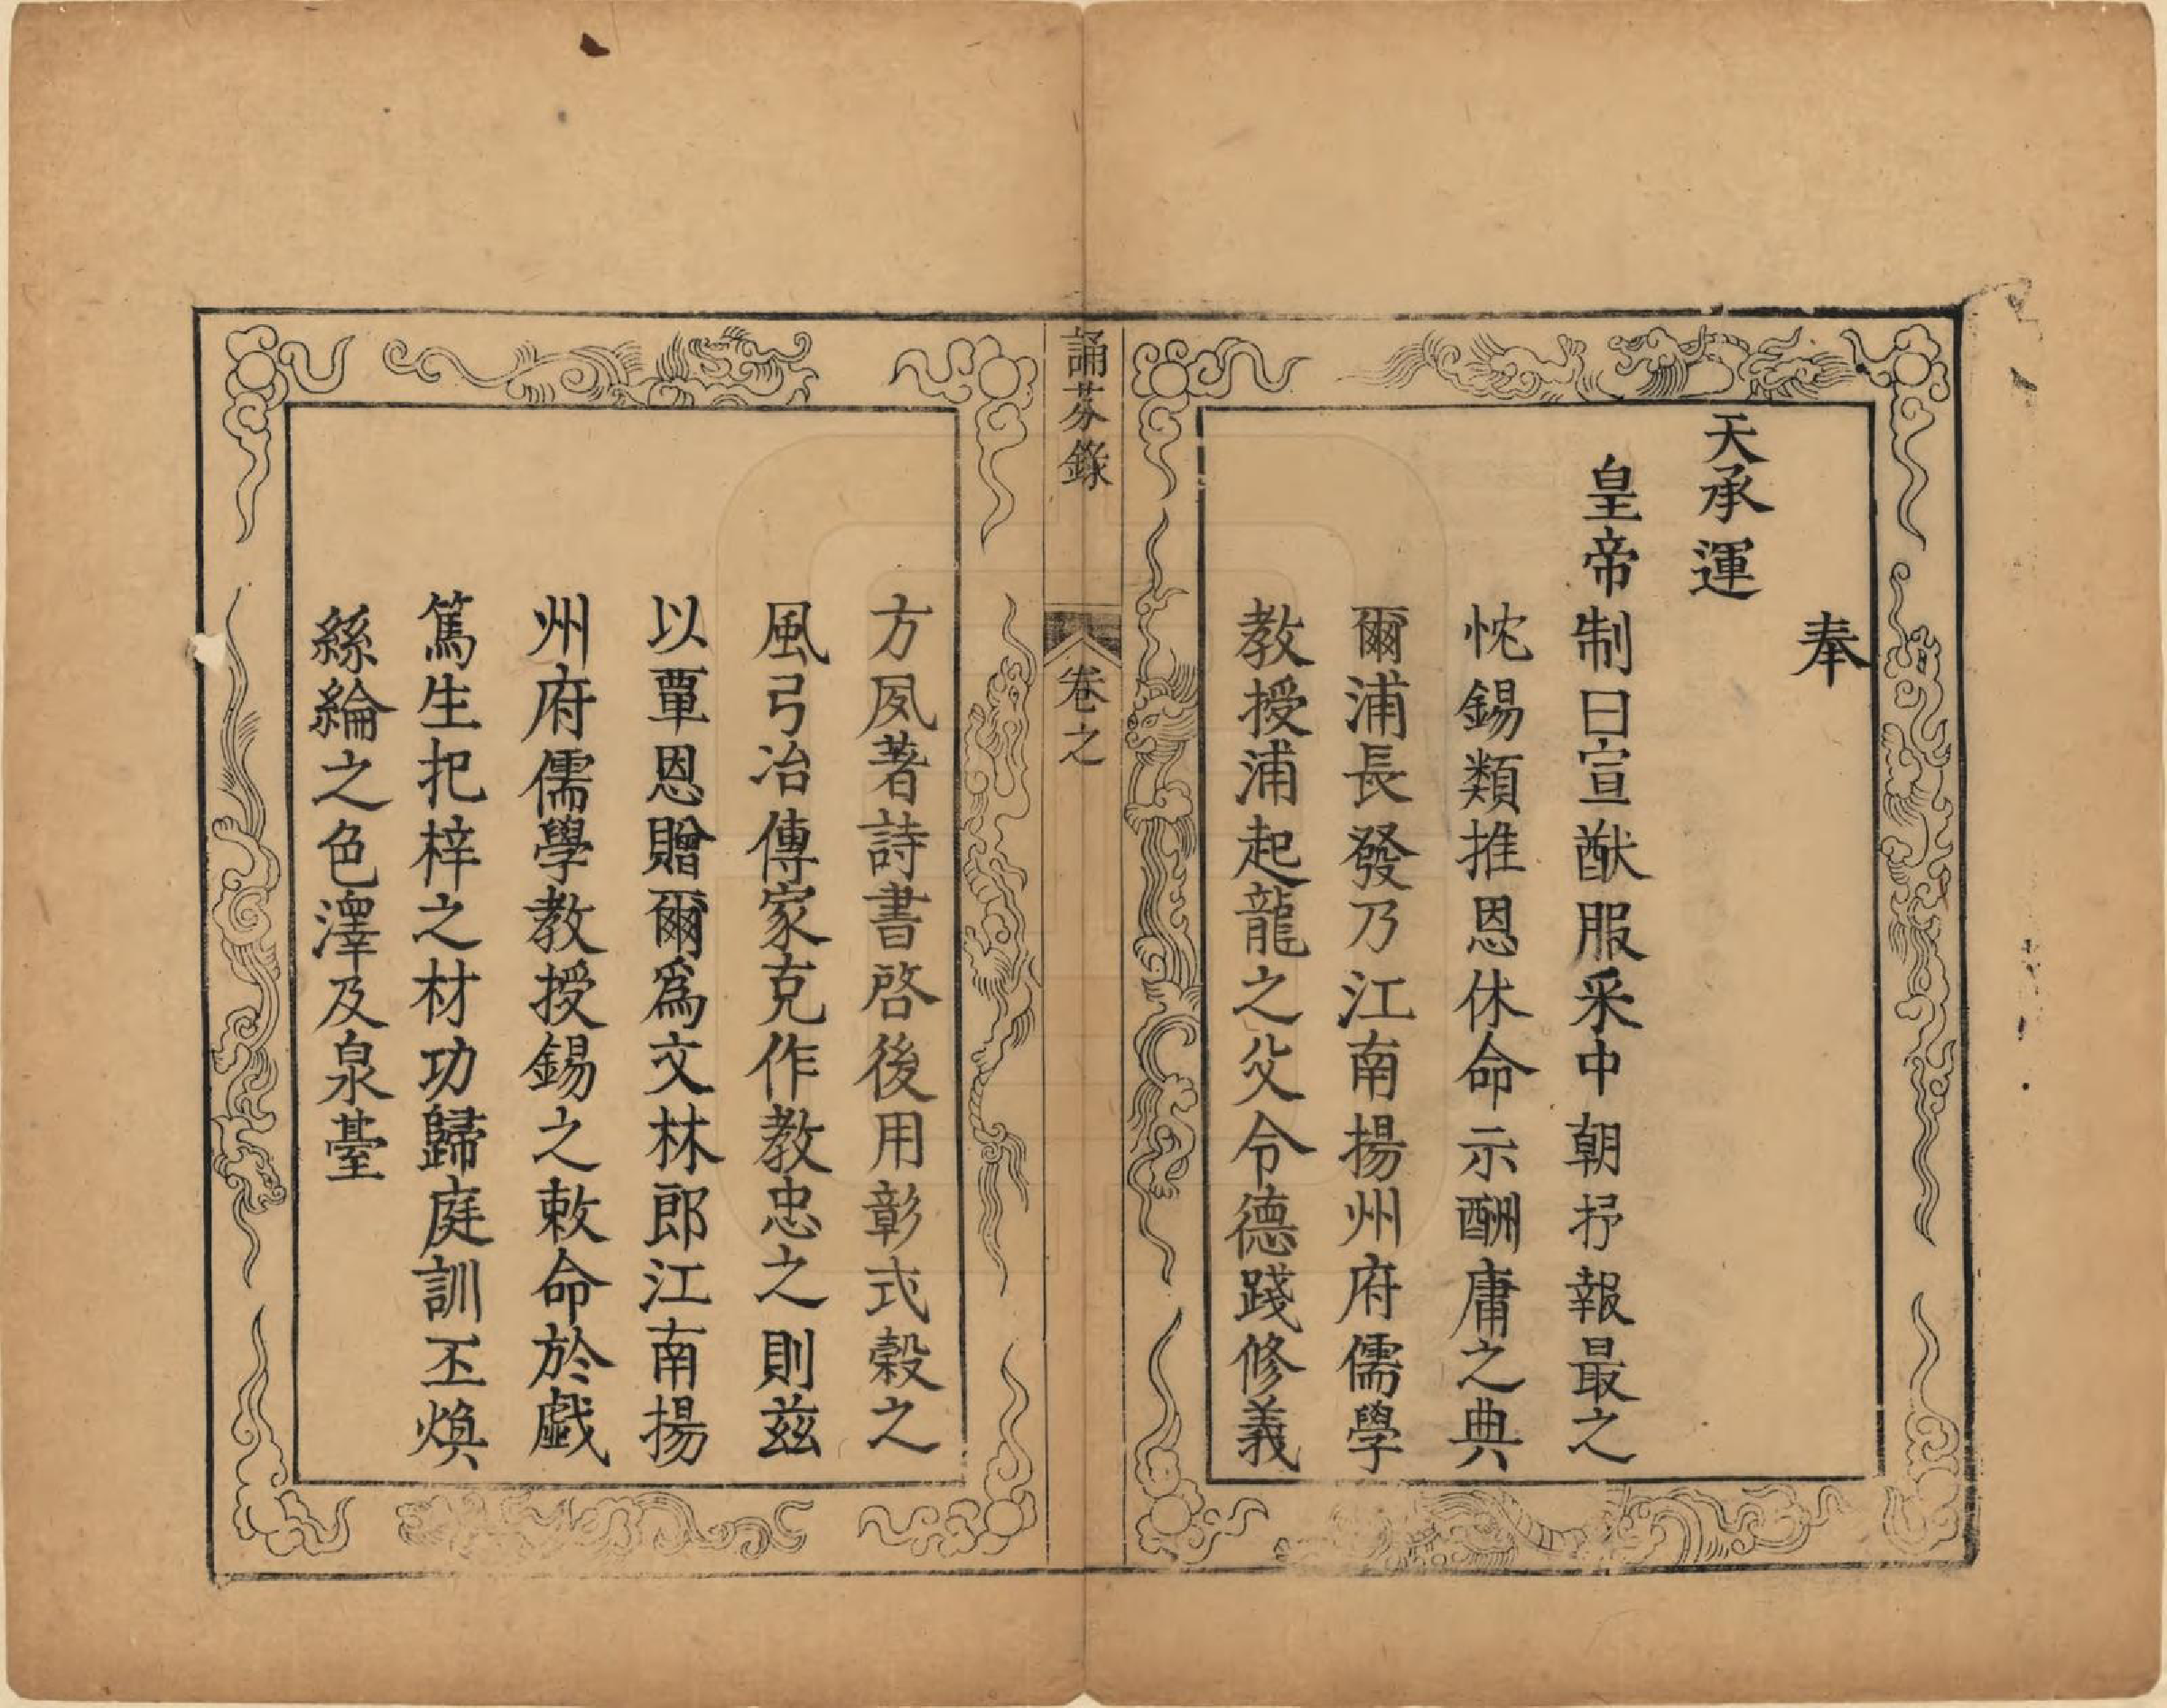 奉
天承運
皇帝制曰宣猷服采中朝抒報最之
忱錫類推恩休命示酬庸之典
爾浦長發乃江南揚州府儒學
教授浦起龍之父令德踐修義
誦芬錄
卷之
方夙著詩書啓後用彰式穀之
風弓冶傳家克作教忠之則茲
以覃恩贈爾爲文林郎江南揚
州府儒學教授錫之敕命於戲
篤生杞梓之材功歸庭訓丕煥
絲綸之色澤及泉臺